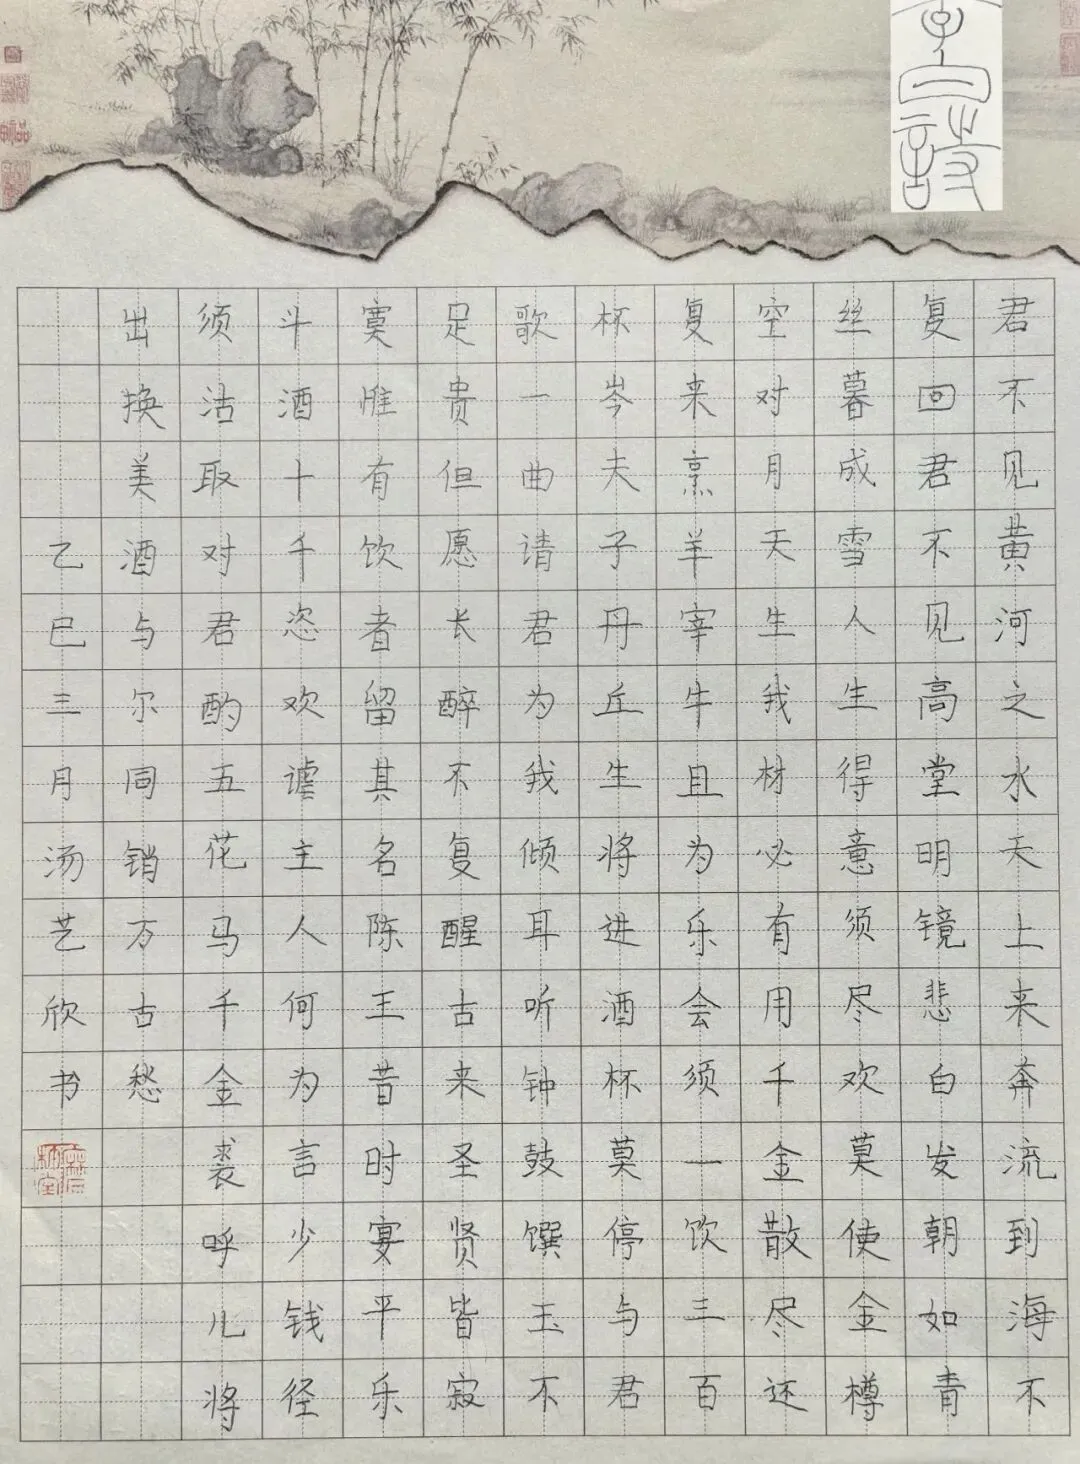 李白詩
君不见黄河之水天上来奔流到海不
复回君不见高堂明镜悲白发朝如青
丝暮成雪人生得意须尽欢莫使金樽
空对月天生我材必有用千金散尽还
复来烹羊宰牛且为乐会须一饮三百
杯岑夫子丹丘生将进酒杯莫停与君
歌一曲请君为我倾耳听钟鼓馔玉不
足贵但愿长醉不复醒古来圣贤皆寂
寞惟有饮者留其名陈王昔时宴平乐
斗酒十千恣欢谑主人何为言少钱径
须沽取对君酌五花马千金裘呼儿将
出换美酒与尔同销万古愁
乙巳三月汤艺欣书